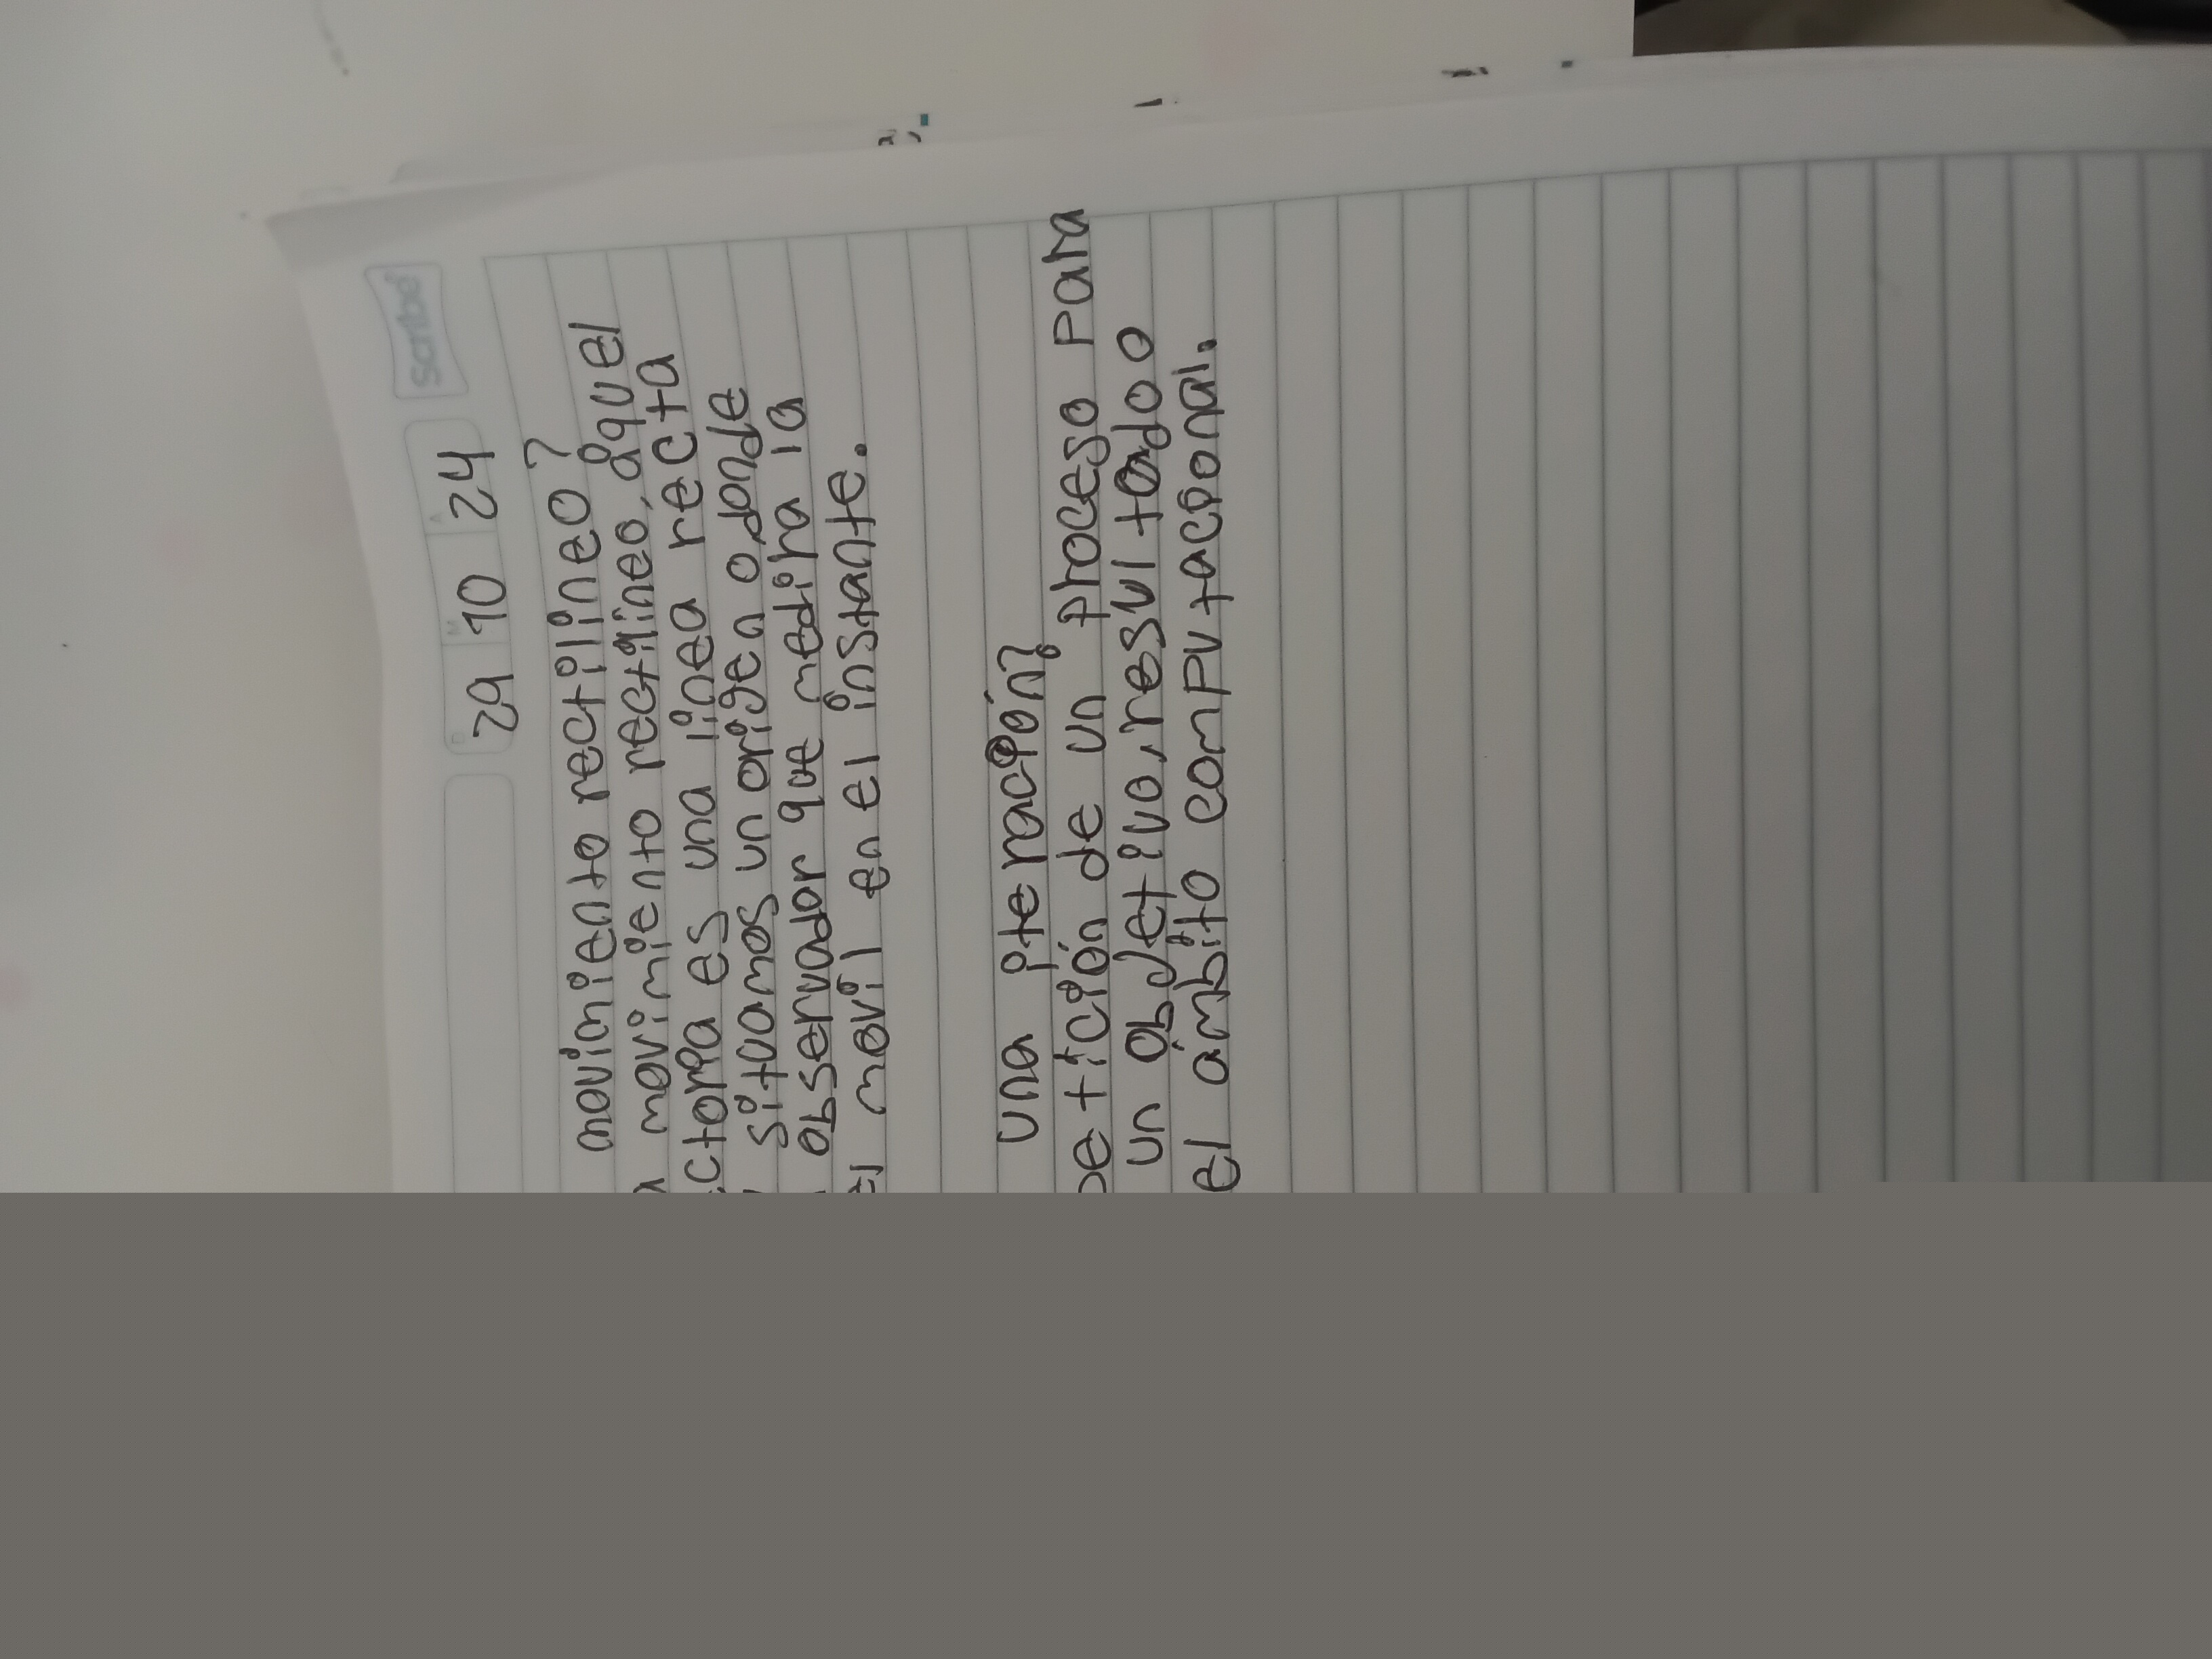 Scribe
D M A
29 10 24
movimiento rectilíneo?
movimiento rectilíneo, aquel
es una línea recta
situamos un origen o donde
observador que medirá la
movil en el instante.
una iteración?
de un proceso para
un objetivo, resultado o
el ámbito computacional.